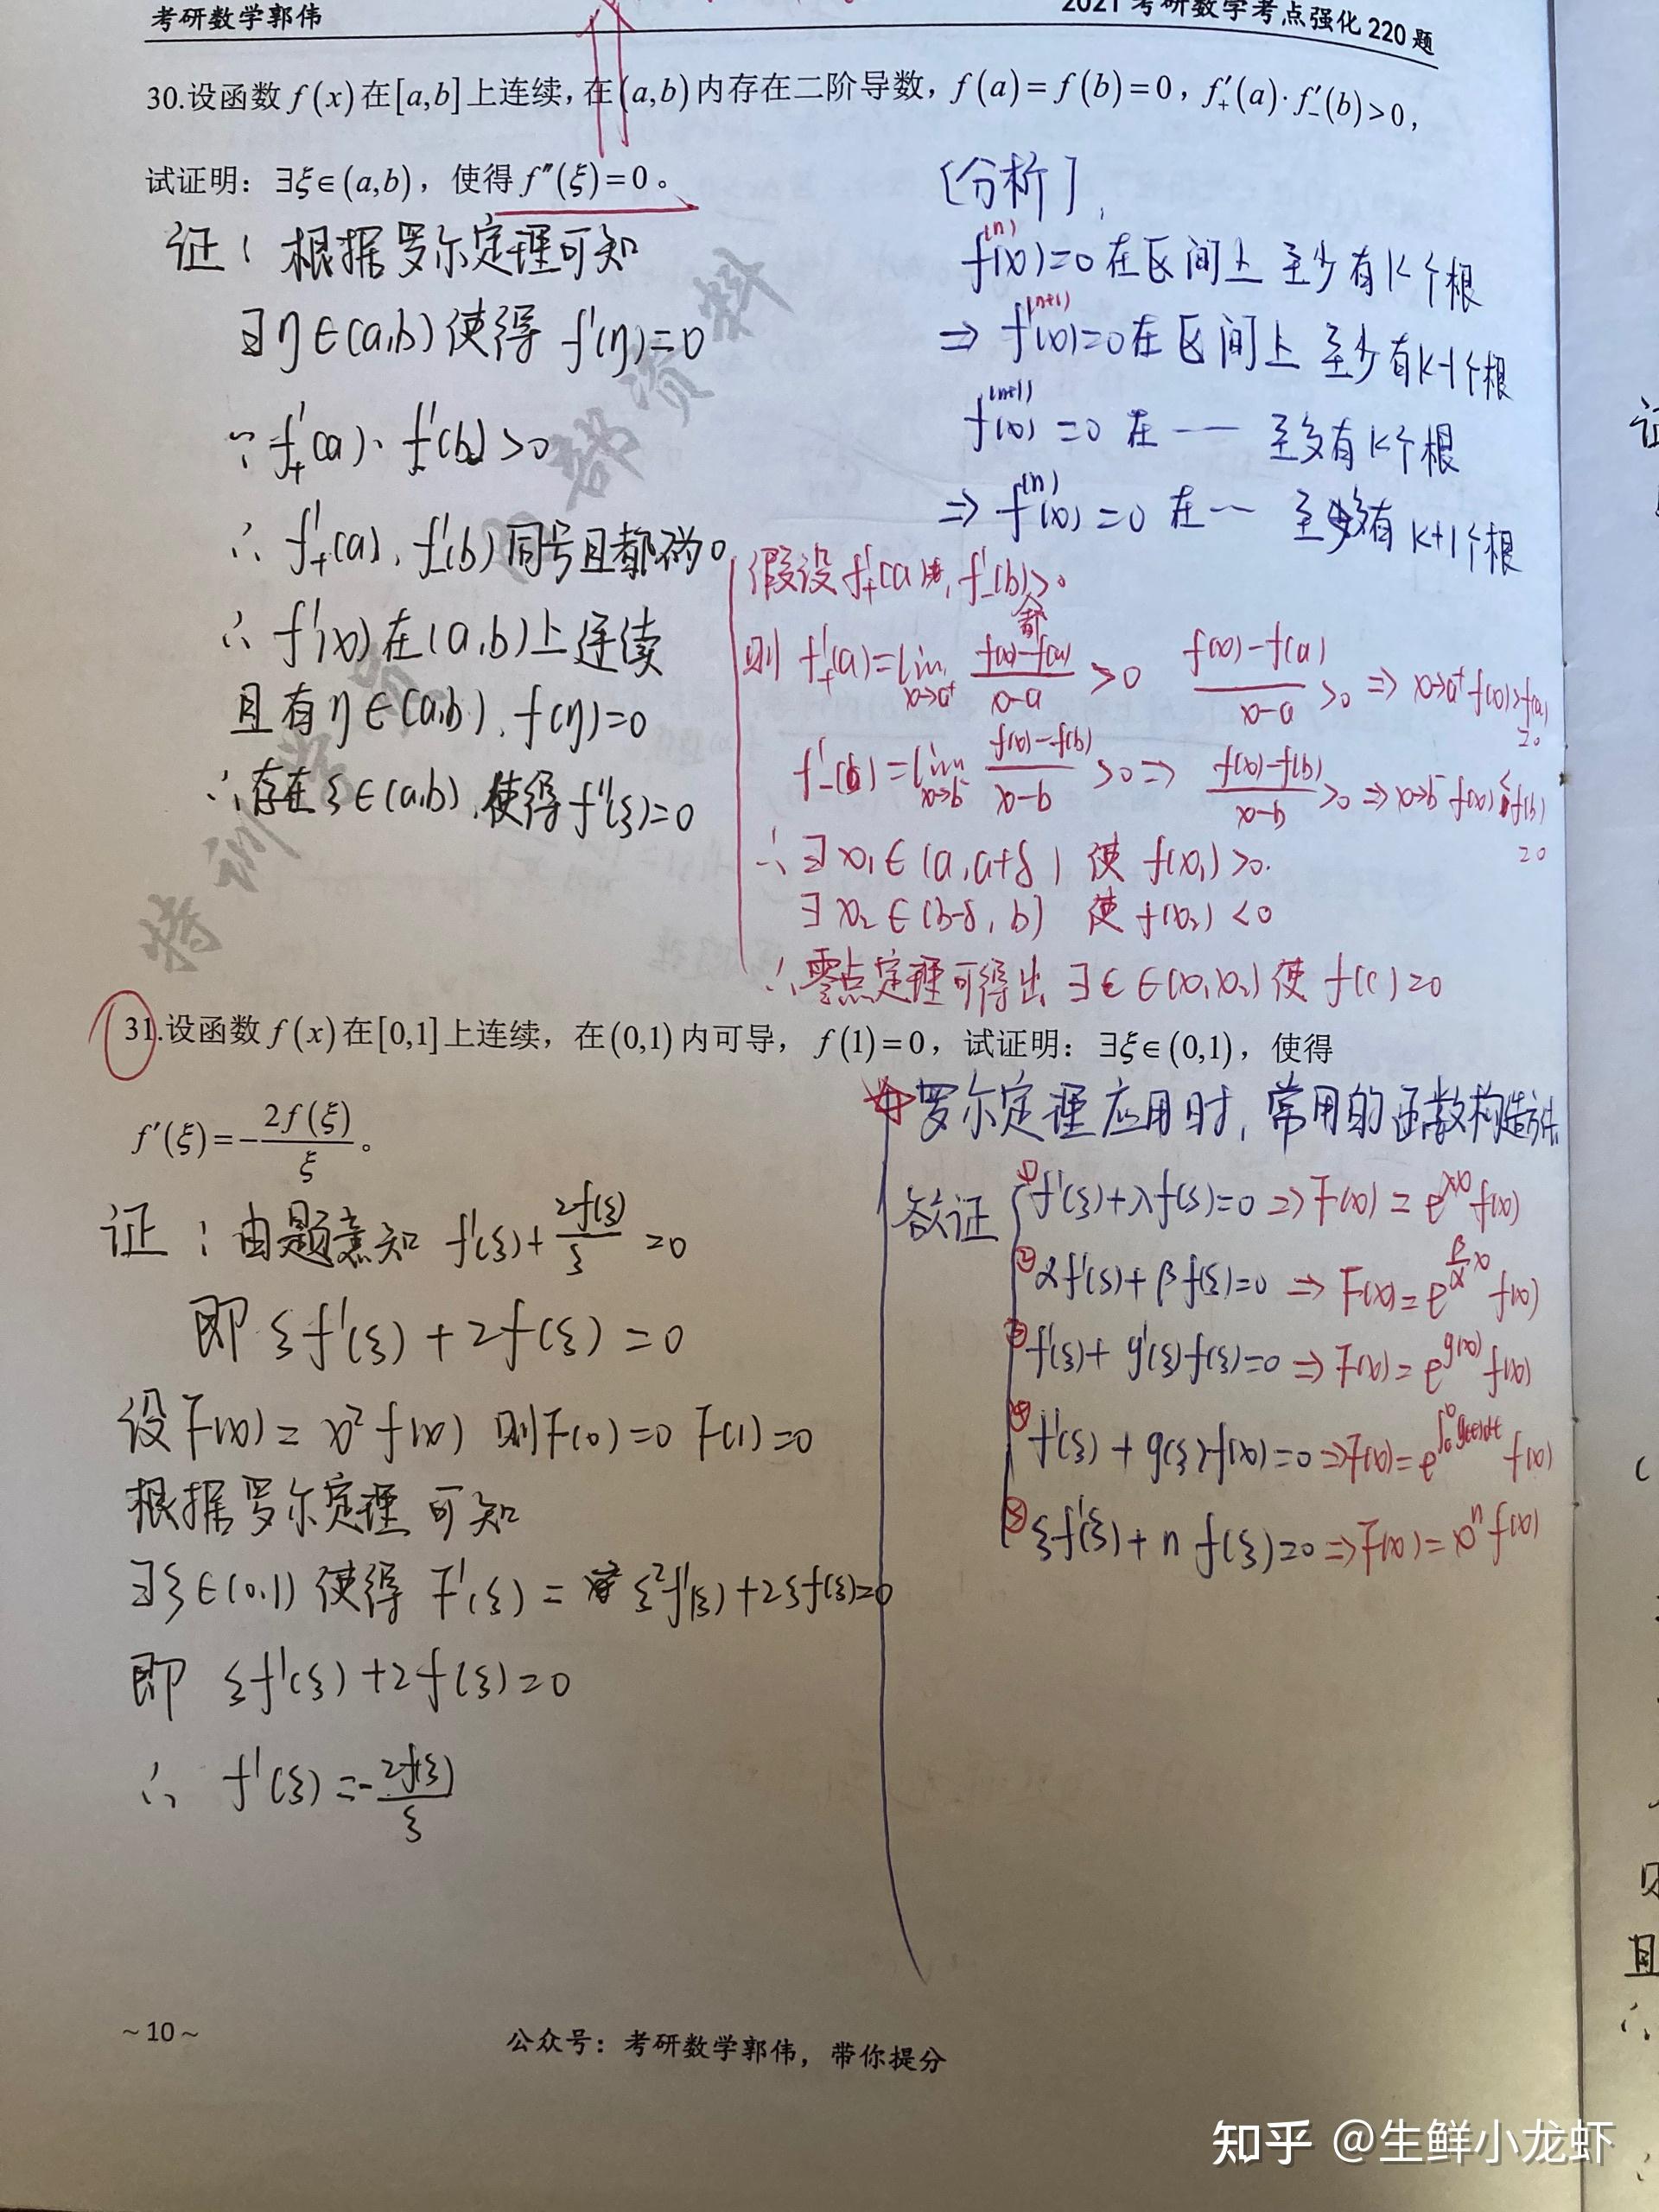 考研数学郭伟
2021考研数学考点强化220题
30.设函数f(x)在[a,b]上连续,在(a,b)内存在二阶导数,f(a)=f(b)=0,f′₊(a)·f′₋(b)>0,
试证明:∃ξ∈(a,b),使得f″(ξ)=0。
证: 根据罗尔定理可知
∃η∈(a,b)使得 f'(η)=0
∵f'₊(a)·f'₋(b)>0
∴ f'₊(a), f'₋(b)同号且都不为0
∴ f'(x)在(a,b)上连续
且有η∈(a,b), f(η)=0
∴存在ξ∈(a,b),使得f''(ξ)=0
[分析]
f⁽ⁿ⁾(x)=0在区间上 至少有k个根
⇒ f⁽ⁿ⁺¹⁾(x)=0在区间上 至少有k-1个根
f⁽ⁿ⁺¹⁾(x)=0 在 —— 至多有k个根
⇒ f⁽ⁿ⁾(x)=0 在 —— 至多有k+1个根
假设f'₊(a), f'₋(b)都>0
则 f'₊(a)=lim x→a⁺ (f(x)-f(a))/(x-a) >0 (f(x)-f(a))/(x-a) >0 ⇒ x→a⁺ f(x)>f(a)=0
f'₋(b)=lim x→b⁻ (f(x)-f(b))/(x-b) >0 ⇒ (f(x)-f(b))/(x-b) >0 ⇒ x→b⁻ f(x)<f(b)=0
∴ ∃x₁∈(a,a+δ) 使 f(x₁)>0.
∃x₂∈(b-δ,b) 使 f(x₂)<0
∴零点定理可得出 ∃c∈(x₁,x₂)使 f(c)=0
31.设函数f(x)在[0,1]上连续,在(0,1)内可导,f(1)=0,试证明:∃ξ∈(0,1),使得
f′(ξ)=-2f(ξ)/ξ。
证:由题意知 f'(ξ)+2f(ξ)/ξ=0
即 ξf'(ξ)+2f(ξ)=0
设F(x)=x²f(x) 则F(0)=0 F(1)=0
根据罗尔定理可知
∃ξ∈(0,1)使得 F'(ξ)= ξ²f'(ξ)+2ξf(ξ)=0
即 ξf'(ξ)+2f(ξ)=0
∴ f'(ξ)=-2f(ξ)/ξ
罗尔定理应用时,常用的函数构造法
欲证 ①f'(ξ)+λf(ξ)=0 ⇒F(x)=e^(λx)f(x)
②αf'(ξ)+βf(ξ)=0 ⇒F(x)=e^(β/α x)f(x)
③f'(ξ)+g'(ξ)f(ξ)=0 ⇒F(x)=e^(g(x))f(x)
④f'(ξ)+g(ξ)f(x)=0⇒F(x)=e^(∫₀ˣg(t)dt)f(x)
⑤ξf'(ξ)+nf(ξ)=0⇒F(x)=xⁿf(x)
特训营 内部资料
~10~
公众号:考研数学郭伟,带你提分
知乎 @生鲜小龙虾